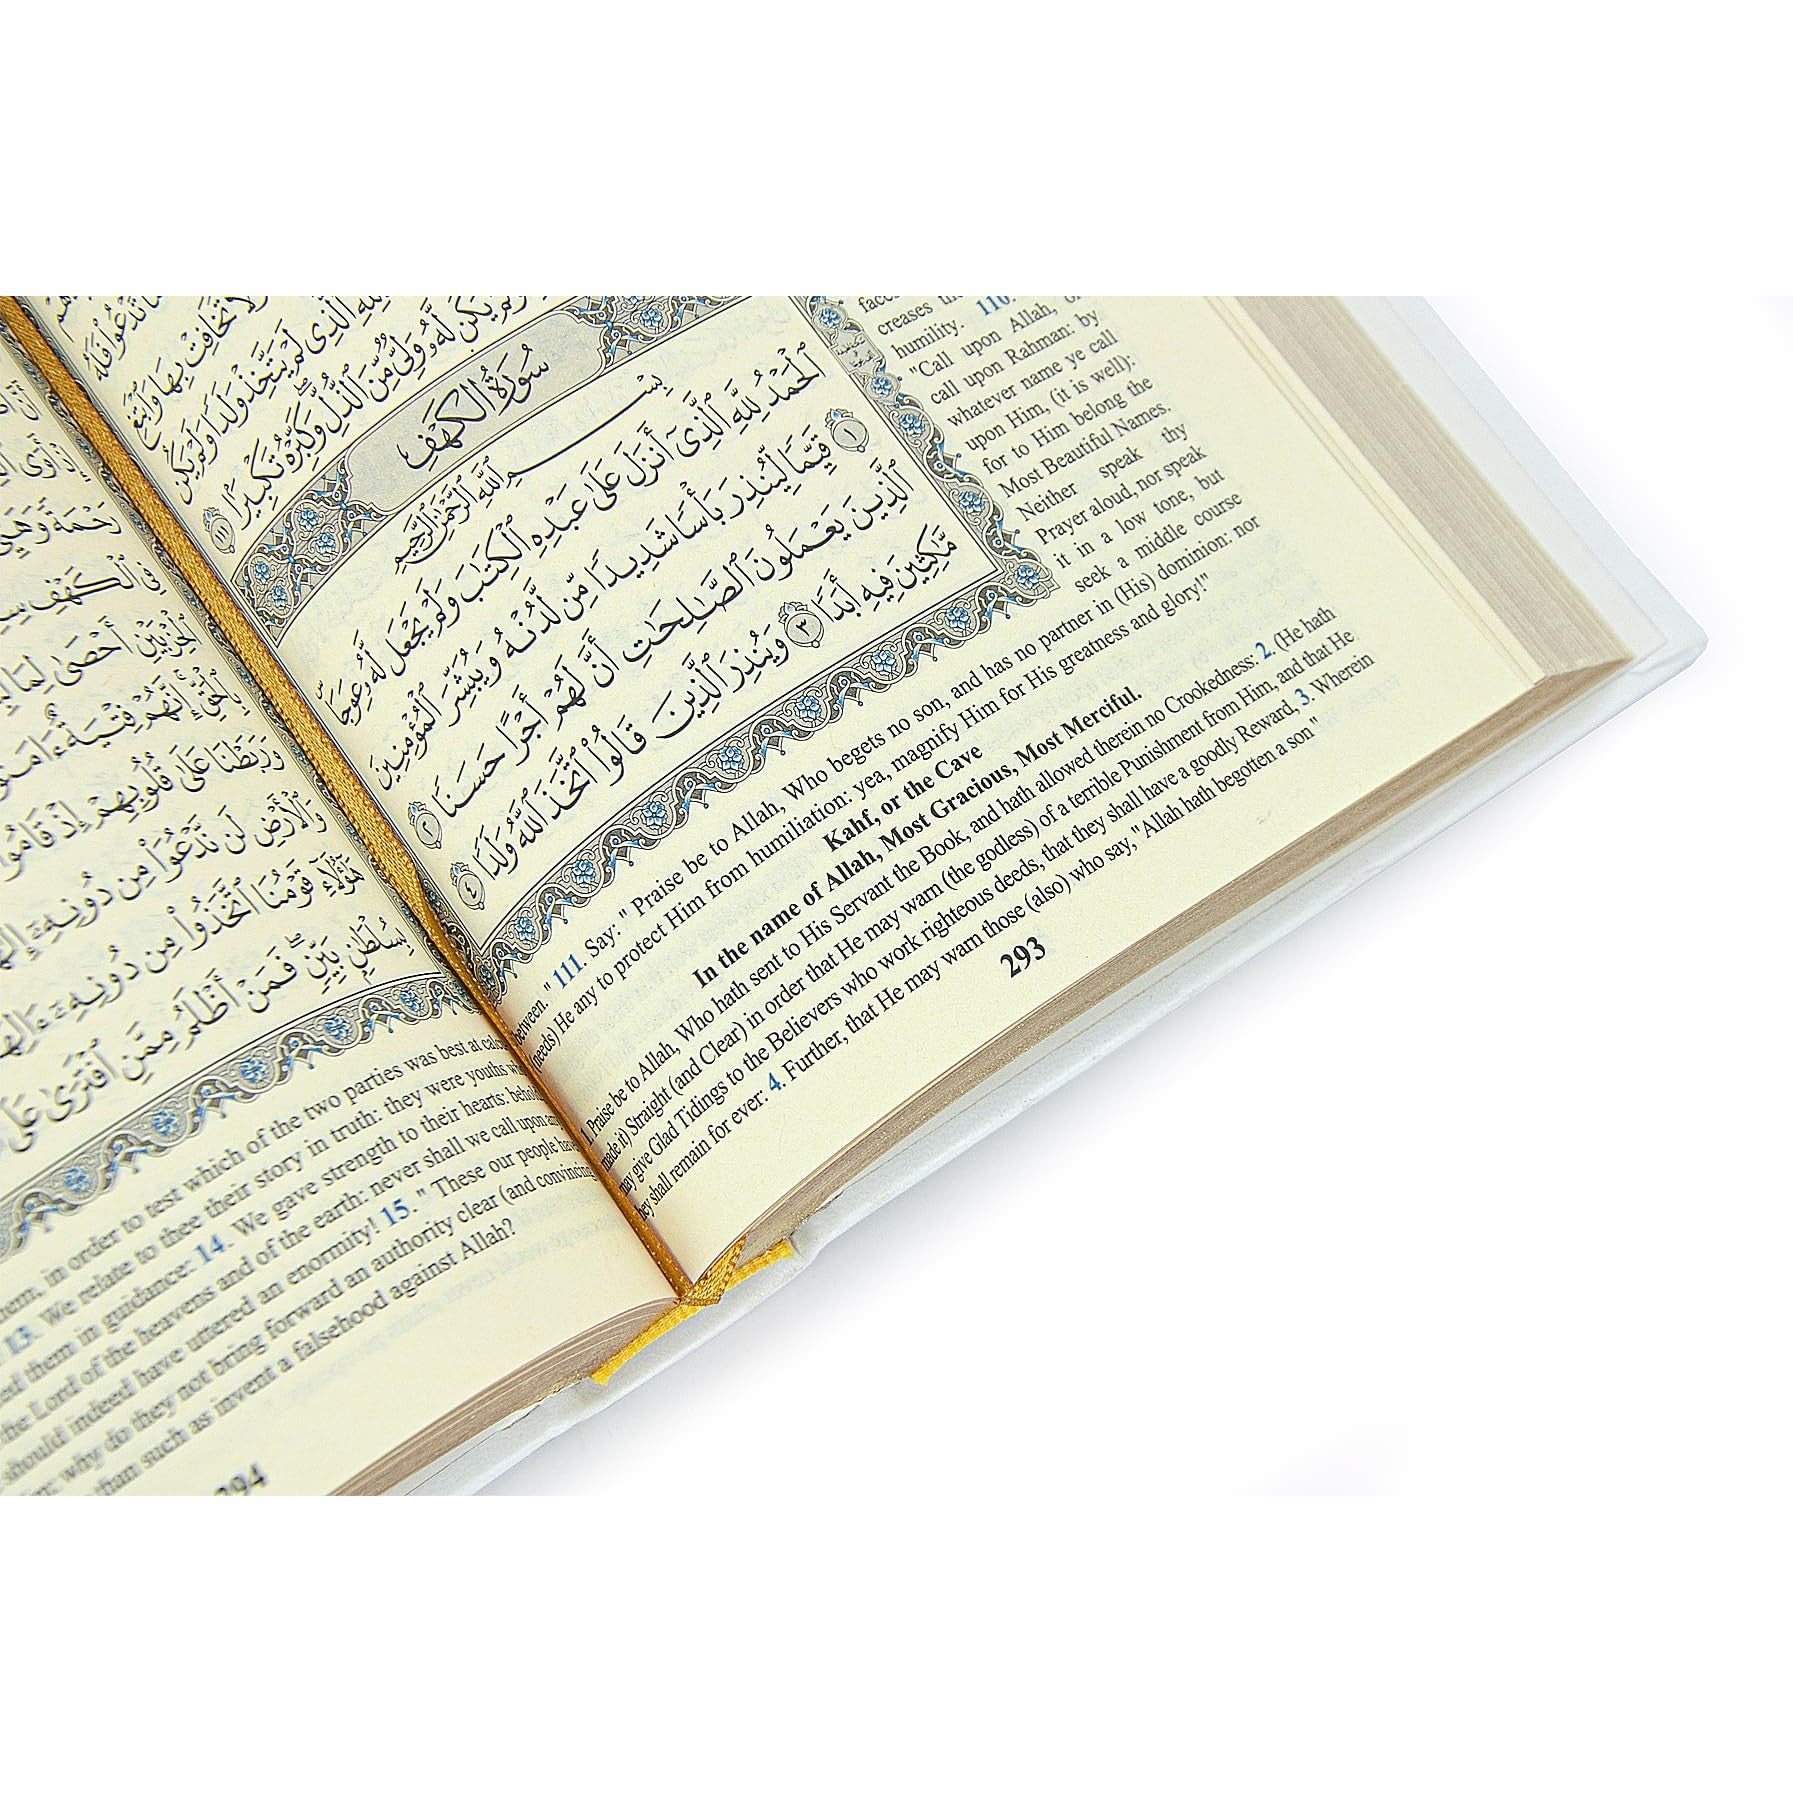 تَدْعُوا۟ فَلَهُ
وَلَا تُخَافِتْ بِهَا وَٱبْتَغِ
لِلَّهِ ٱلَّذِى لَمْ يَتَّخِذْ وَلَدًا وَلَمْ يَكُن
يَكُن لَّهُۥ وَلِىٌّ مِّنَ ٱلذُّلِّ ۖ وَكَبِّرْهُ تَكْبِيرًۢا ١١١
سُورَةُ ٱلْكَهْفِ
بِسْمِ ٱللَّهِ ٱلرَّحْمَٰنِ ٱلرَّحِيمِ
ٱلْحَمْدُ لِلَّهِ ٱلَّذِىٓ أَنزَلَ عَلَىٰ عَبْدِهِ ٱلْكِتَٰبَ وَلَمْ يَجْعَل لَّهُۥ عِوَجَا ۜ
١ قَيِّمًا لِّيُنذِرَ بَأْسًا شَدِيدًا مِّن لَّدُنْهُ وَيُبَشِّرَ ٱلْمُؤْمِنِينَ
ٱلَّذِينَ يَعْمَلُونَ ٱلصَّٰلِحَٰتِ أَنَّ لَهُمْ أَجْرًا حَسَنًا ٢
مَّٰكِثِينَ فِيهِ أَبَدًا ٣ وَيُنذِرَ ٱلَّذِينَ قَالُوا۟ ٱتَّخَذَ ٱللَّهُ وَلَدًا ٤
creases
humility. 110.
"Call upon Allah, or
call upon Rahman: by
whatever name ye call
upon Him, (it is well):
for to Him belong the
Most Beautiful Names.
Neither speak thy
Prayer aloud, nor speak
it in a low tone, but
seek a middle course
between." 111. Say: " Praise be to Allah, Who begets no son, and has no partner in (His) dominion: nor
(needs) He any to protect Him from humiliation: yea, magnify Him for His greatness and glory!"
Kahf, or the Cave
In the name of Allah, Most Gracious, Most Merciful.
1. Praise be to Allah, Who hath sent to His Servant the Book, and hath allowed therein no Crookedness: 2. (He hath
made it) Straight (and Clear) in order that He may warn (the godless) of a terrible Punishment from Him, and that He
may give Glad Tidings to the Believers who work righteous deeds, that they shall have a goodly Reward, 3. Wherein
they shall remain for ever: 4. Further, that He may warn those (also) who say, "Allah hath begotten a son"
293
إِذْ أَوَى
رَحْمَةً وَهَيِّئْ
فِى ٱلْكَهْفِ
ٱلْحِزْبَيْنِ أَحْصَىٰ لِمَا
بِٱلْحَقِّ ۚ إِنَّهُمْ فِتْيَةٌ ءَامَنُوا۟
وَرَبَطْنَا عَلَىٰ قُلُوبِهِمْ إِذْ قَامُوا۟
وَٱلْأَرْضِ لَن نَّدْعُوَا۟ مِن دُونِهِۦٓ
هَٰٓؤُلَآءِ قَوْمُنَا ٱتَّخَذُوا۟ مِن دُونِهِۦٓ
بِسُلْطَٰنٍۭ بَيِّنٍ ۖ فَمَنْ أَظْلَمُ مِمَّنِ ٱفْتَرَىٰ عَلَى
them, in order to test which of the two parties was best at
13. We relate to thee their story in truth: they were youths
them in guidance: 14. We gave strength to their hearts: behold
the Lord of the heavens and of the earth: never shall we call upon
should indeed have uttered an enormity! 15. " These our people have
why do they not bring forward an authority clear (and convincing
than such as invent a falsehood against Allah?
294